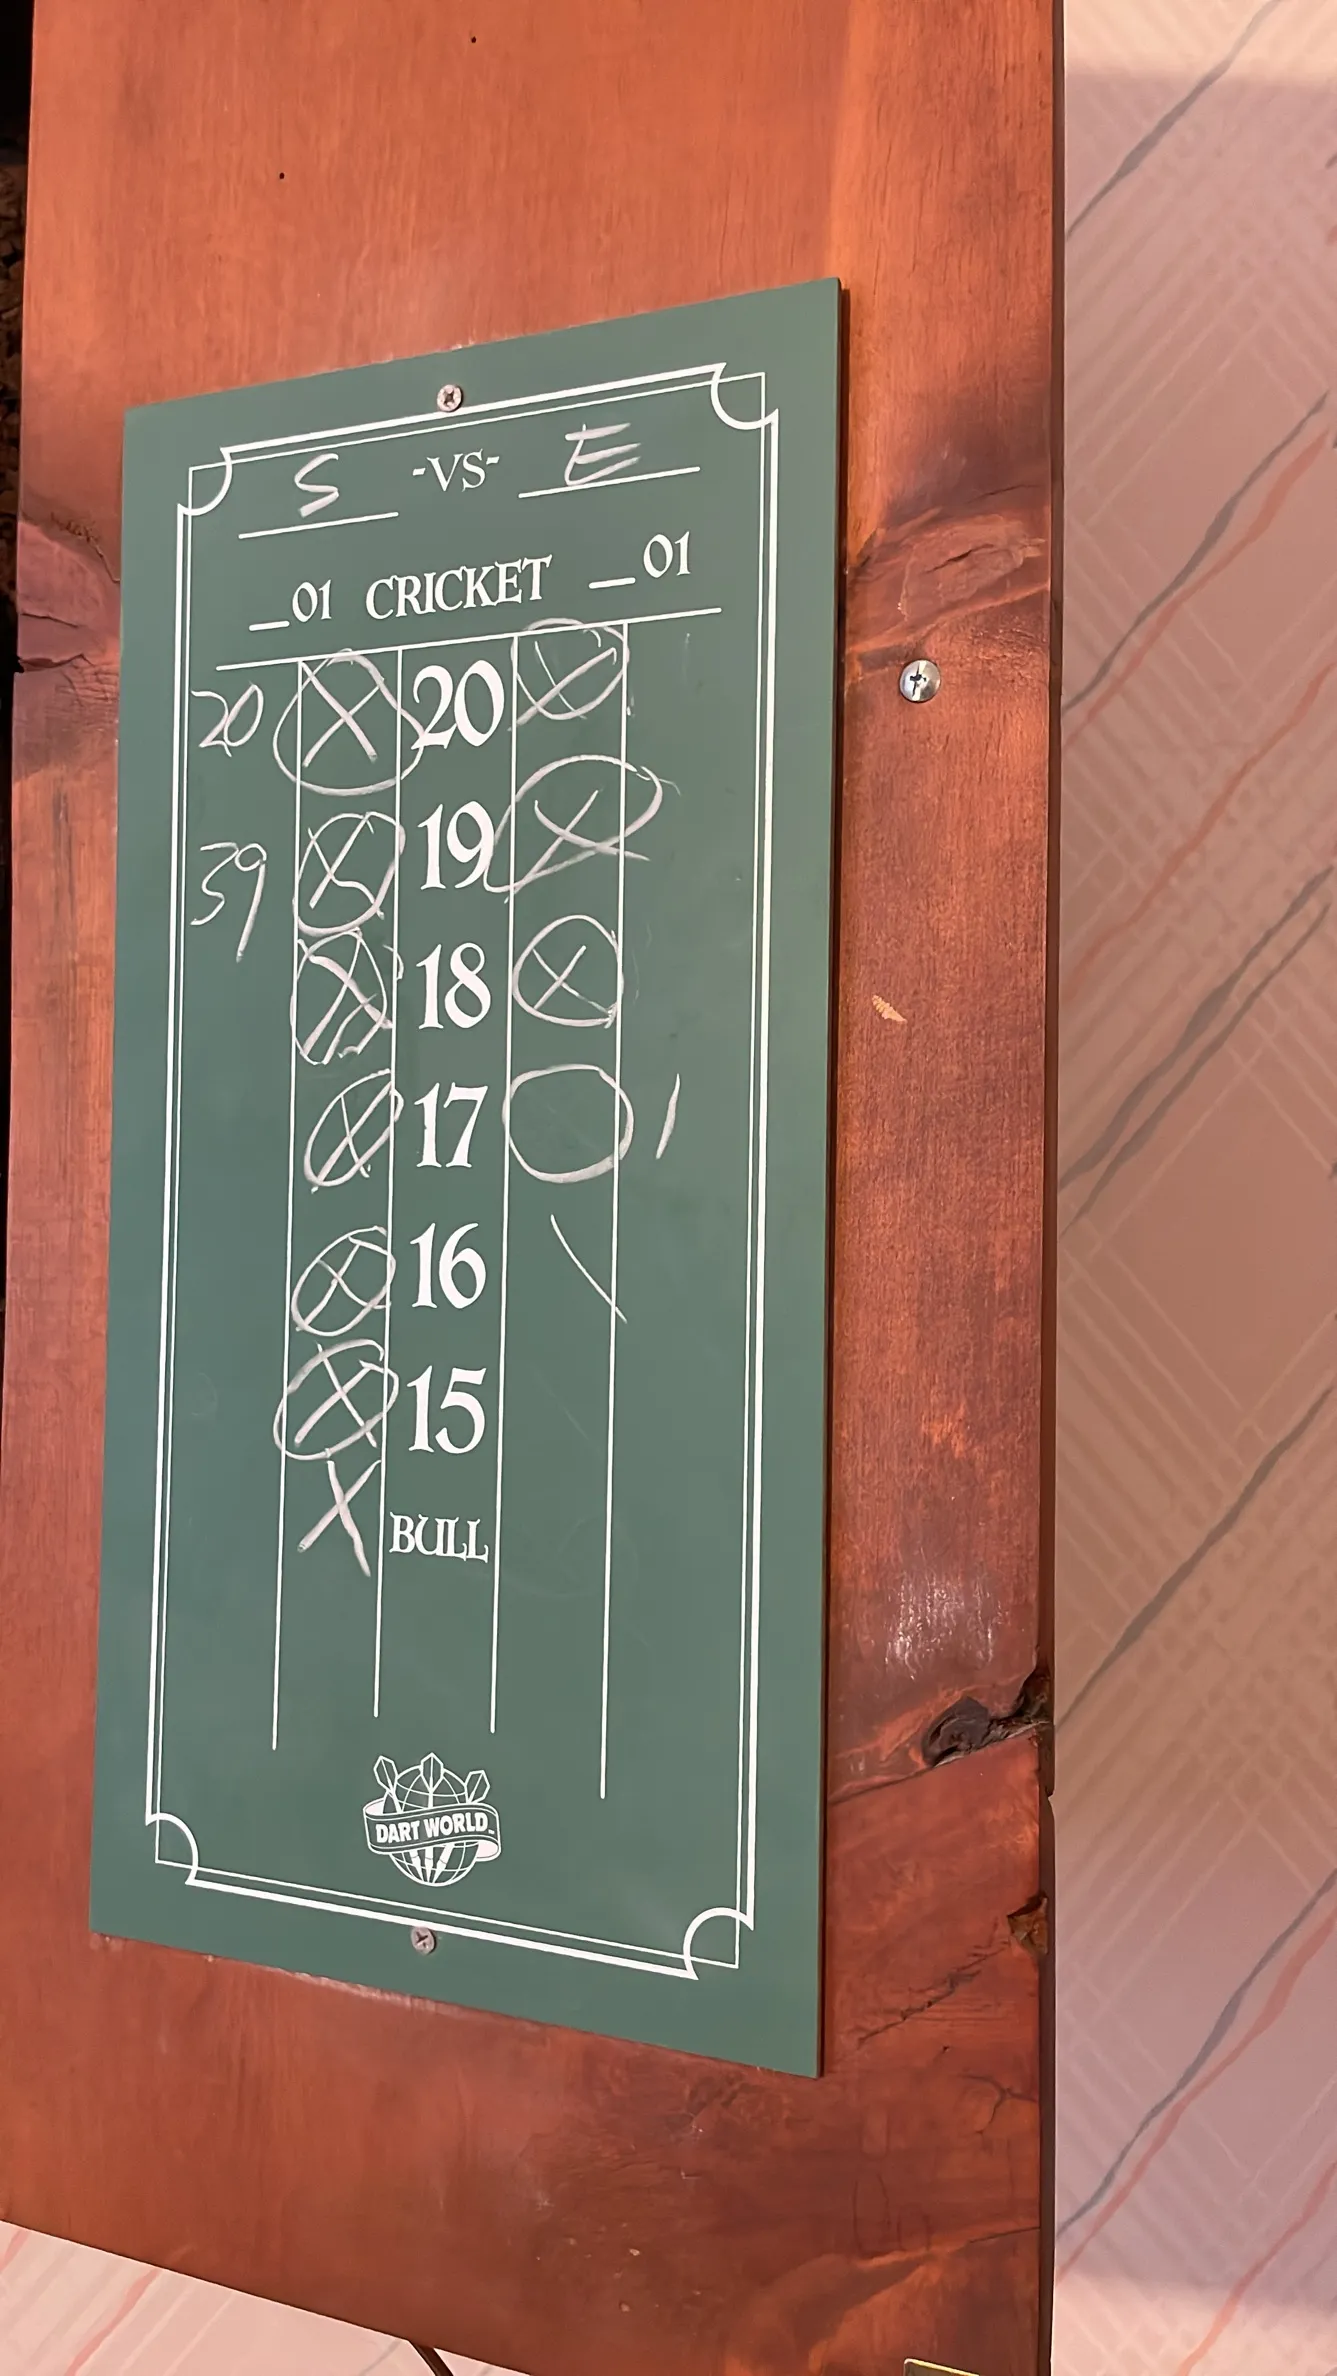 S -VS- E
_01 CRICKET _01
20 X 20 X
39 X 19 X
X 18 X
X 17 1
X 16 \
X 15
X BULL
DART WORLD